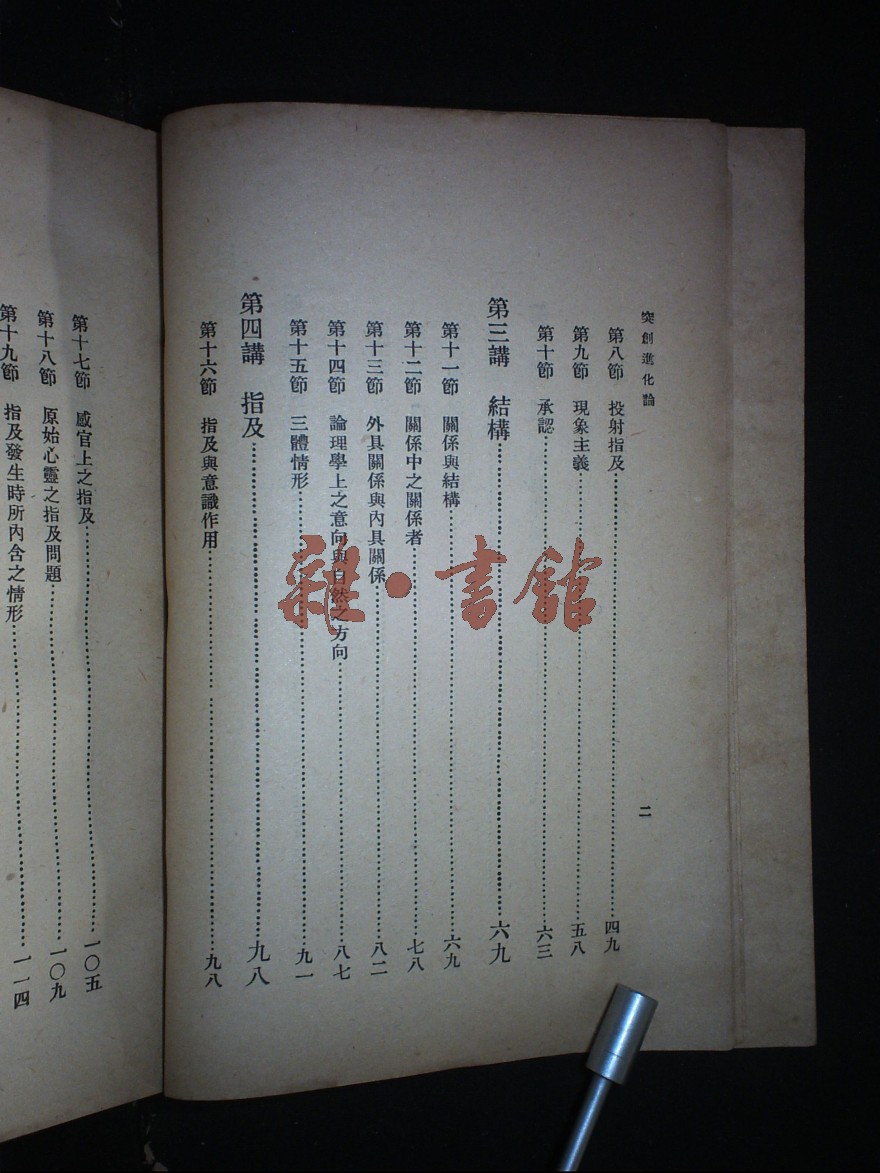 突創進化論
二
第八節 投射指及……四九
第九節 現象主義……五八
第十節 承認……六三
第三講 結構……六九
第十一節 關係與結構……六九
第十二節 關係中之關係者……七八
第十三節 外具關係與內具關係……八二
第十四節 論理學上之意向與自然之方向……八七
第十五節 三體情形……九一
第四講 指及……九八
第十六節 指及與意識作用……九八
第十七節 感官上之指及……一〇五
第十八節 原始心靈之指及問題……一〇九
第十九節 指及發生時所內含之情形……一一四
雜·書館